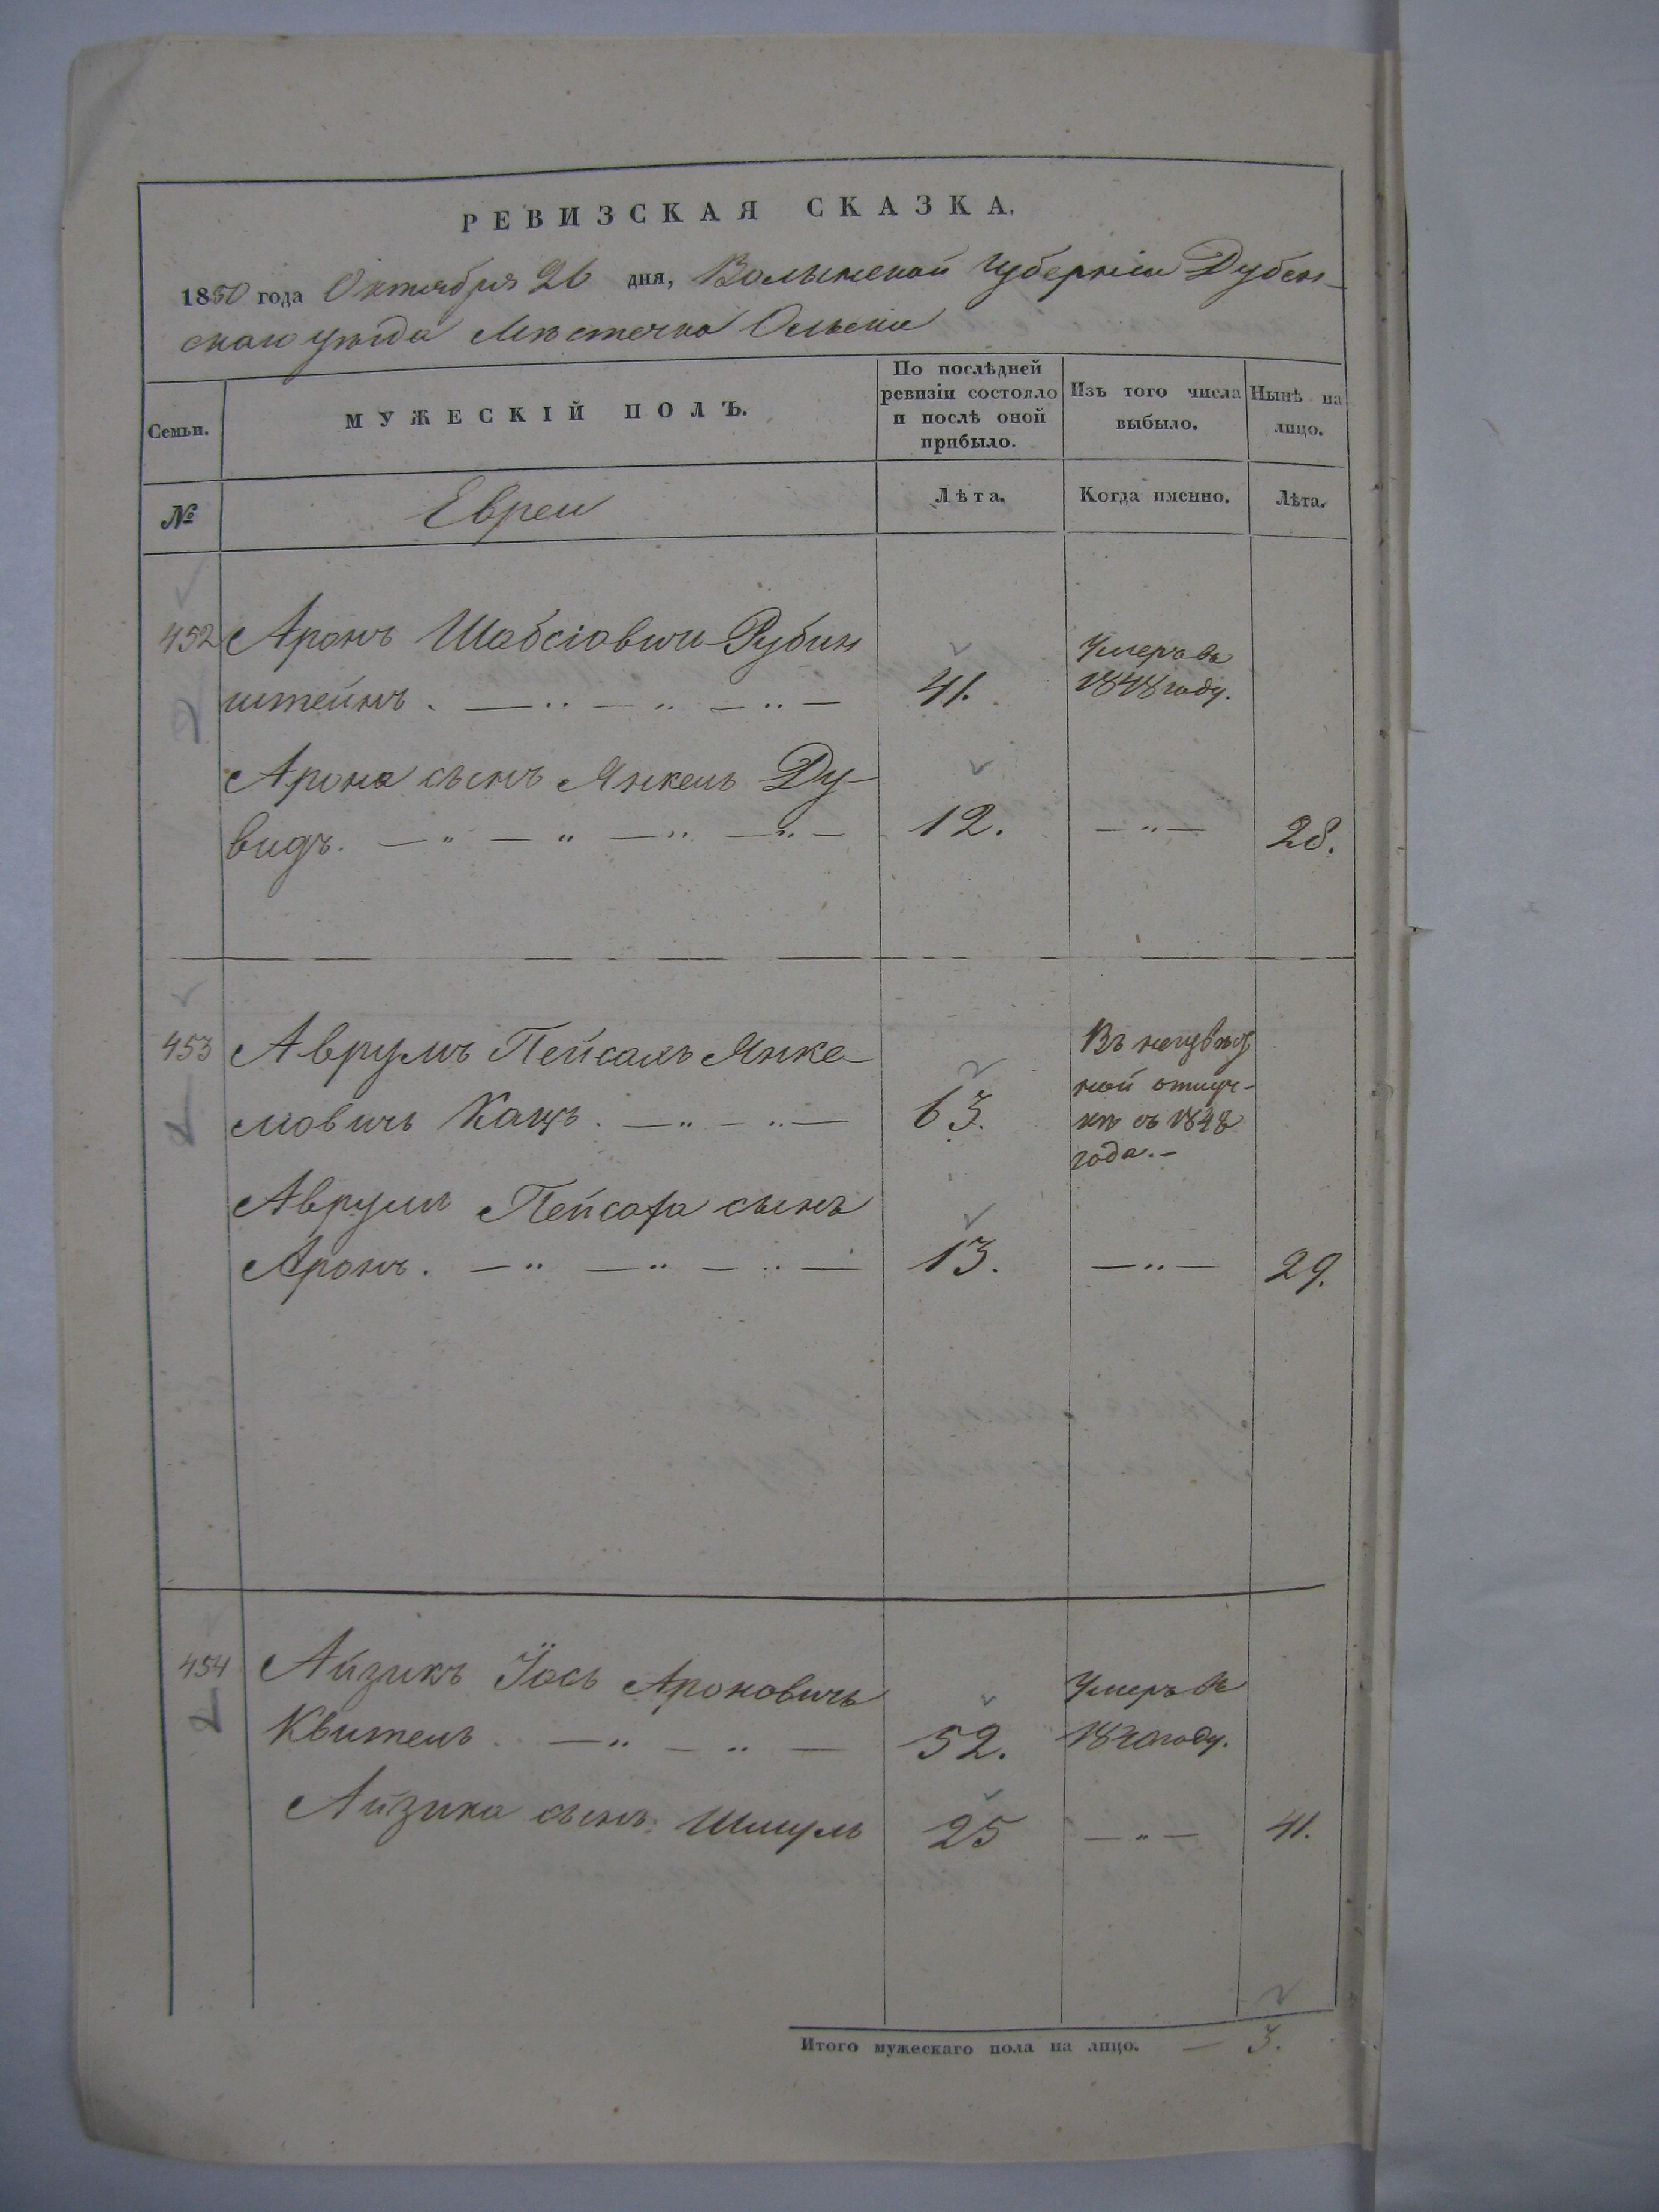 РЕВИЗСКАЯ СКАЗКА.
1850 года Октября 26 дня, Волынской Губерніи Дубен-
скаго уѣзда Мѣстечка
Семьи.
МУЖЕСКІЙ ПОЛЪ.
По послѣдней ревизіи состояло и послѣ оной прибыло.
Изъ того числа выбыло.
Нынѣ на лицо.
№
Евреи
Лѣта.
Когда именно.
Лѣта.
452 Аронъ Шабсіовичь Рубин
штейнъ. — „ — „ — „ — 41. Умеръ въ 1848 году.
Арона сынъ Янкель Ду-
видъ. — „ — „ — „ — „ — 12. — „ — 28.
453 Аврумъ Пейсахъ Янке-
ловичь Кацъ. — „ — „ — 63. Въ неизвѣст
ной отлуч-
кѣ съ 1848
года. —
Аврумъ Пейсаха сынъ
Аронъ. — „ — „ — „ — 13. — „ — 29.
454 Айзикъ Іось Ароновичь
Квитель. — „ — „ — 52. Умеръ въ
году.
Айзика сынъ: Шмуль 25 — „ — 41.
Итого мужескаго пола на лицо. — 3.